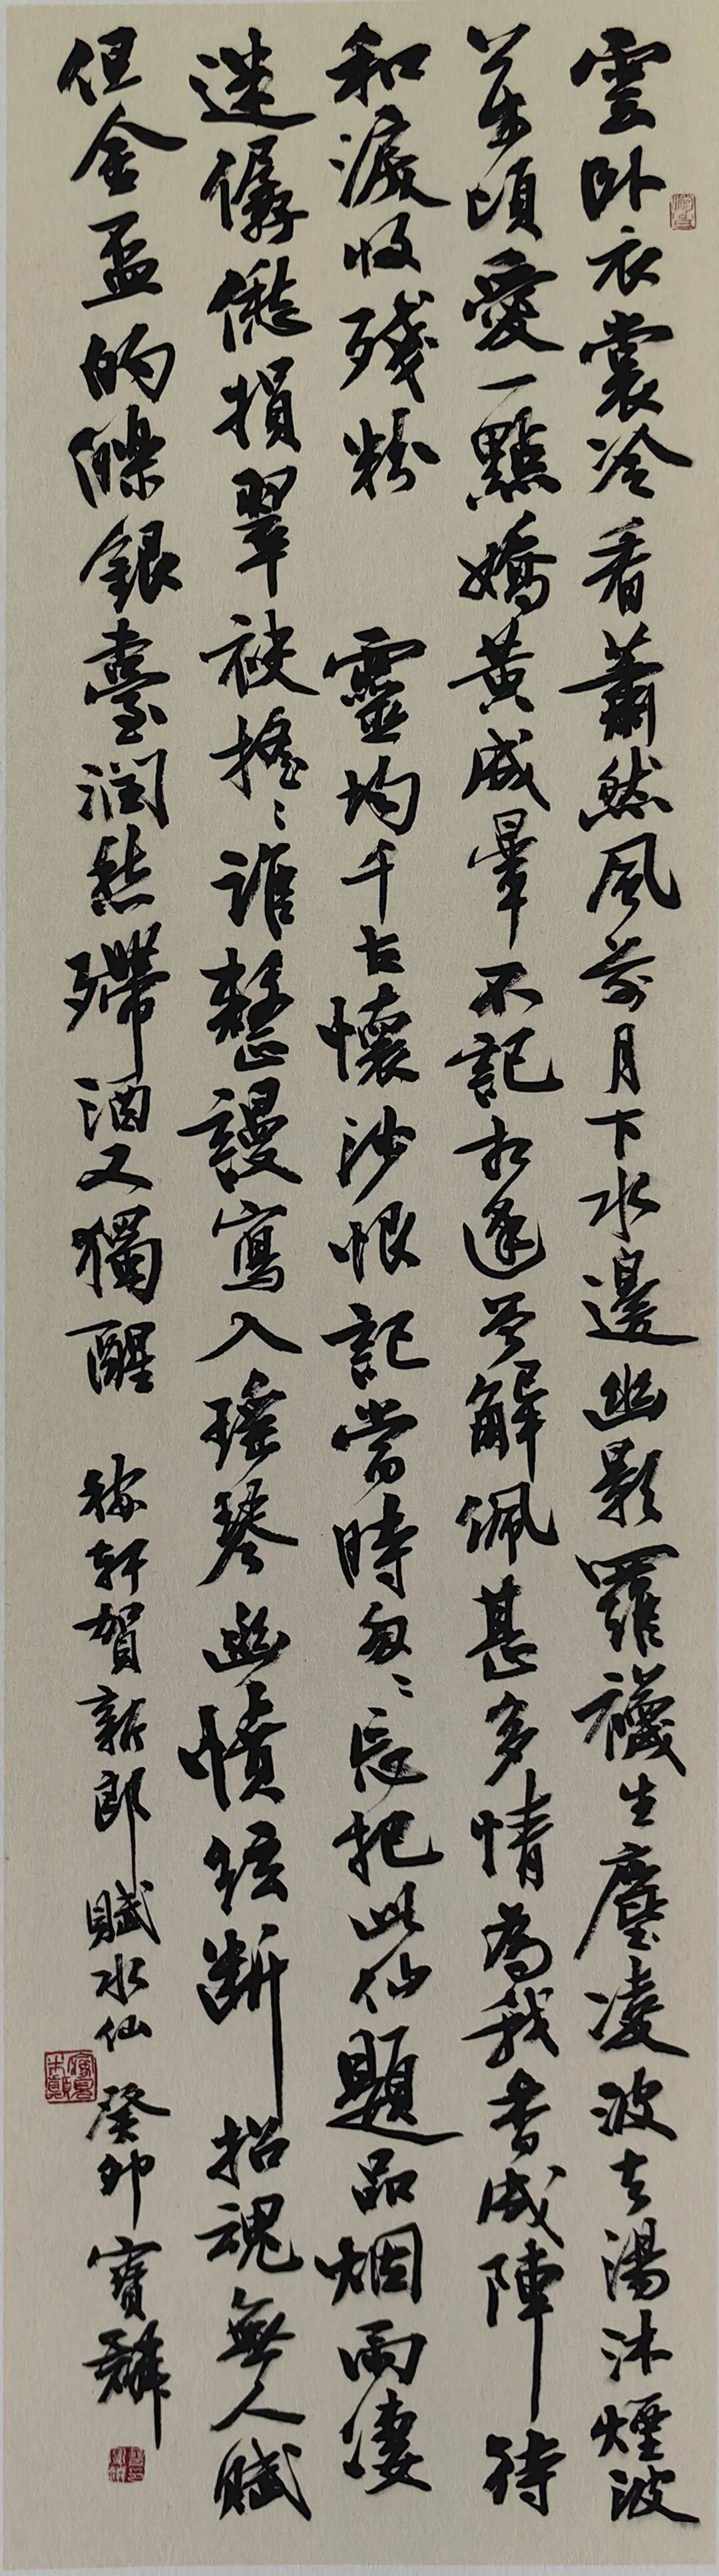 雲卧衣裳冷看蕭然風前月下水邊幽影羅襪生塵凌波去湯沐煙波
萬頃愛一點嬌黃成暈不記相逢曾解佩甚多情為我香成陣待
和淚收殘粉 靈均千古懷沙恨記當時匆々忘把此仙題品烟雨淒
迷僝僽損翠袂搖々誰整謾寫入瑤琴幽憤絃斷招魂無人賦
但金盃的皪銀臺潤愁殢酒又獨醒 稼軒賀新郎賦水仙 癸卯寶麟